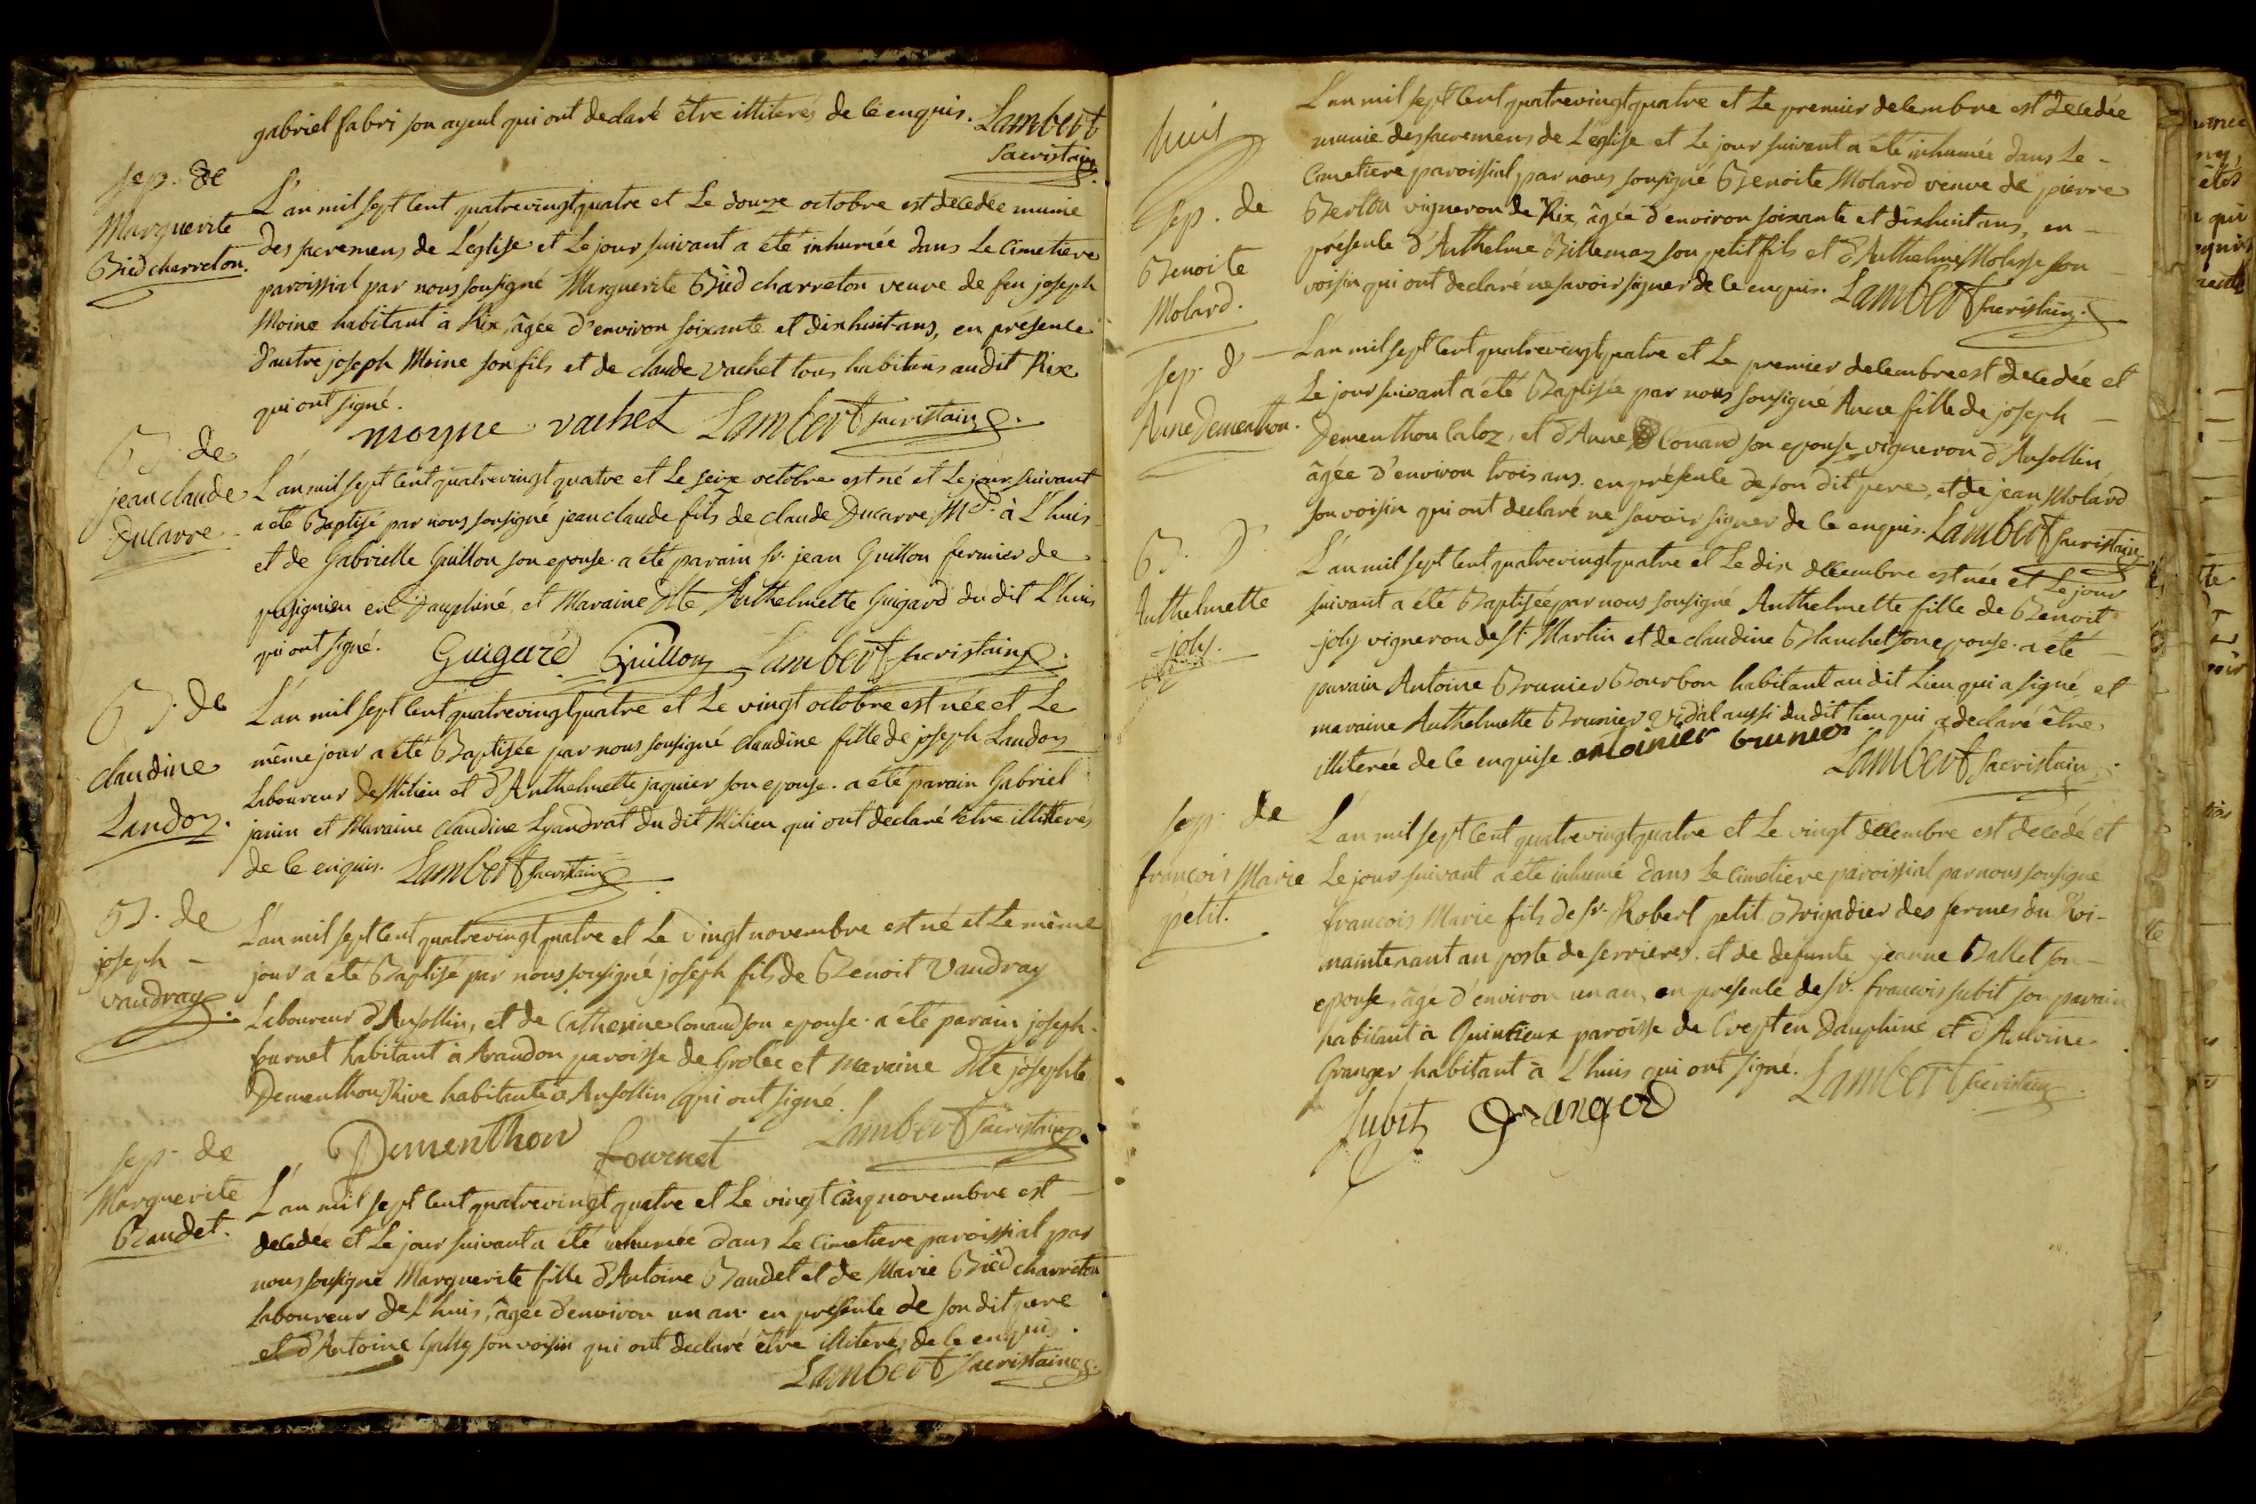 gabriel fabri son ayeul qui ont declaré être illiterés de ce enquis. Lambert
Sacristain
sep. de
Marguerite
Bied charreton.
L'an mil sept cent quatrevingt quatre et Le douze octobre est decedée munie
des sacremens de L'eglise et Le jour suivant a été inhumée dans Le Cimetiere
paroissial par nous sousigné Marguerite Bied charreton veuve de feu joseph
Moine habitant à Rix, âgée d'environ soixante et dixhuit ans, en présence
d'autre joseph Moine son fils et de claude vachet tous habitans audit Rix
qui ont signé.
moyne vachet Lambert sacristain
B. de
jean claude
Ducarre
L'an mil sept cent quatrevingt quatre et Le seize octobre est né et Le jour suivant
a été Baptisé par nous sousigné jean claude fils de claude Ducarre Md. à L'huis
et de Gabrielle Guillon son epouse. a été parain sr. jean Guillon fermier de
pusignieu en Dauphiné, et Maraine Dlle Anthelmette Guigard du dit L'huis
qui ont signé. Guigard Guillon Lambert sacristain
B. de
claudine
Landoz.
L'an mil sept cent quatrevingt quatre et Le vingt octobre est née et Le
même jour a été Baptisée par nous sousigné claudine fille de joseph Landoz
Laboureur de Milieu et d'Anthelmette jaquier son epouse. a été parain Gabriel
janin et Maraine claudine Lyandrat du dit Milieu qui ont declaré être illitterés
de ce enquis. Lambert sacristain
B. de
joseph
vaudray.
L'an mil sept cent quatrevingt quatre et Le vingt novembre est né et Le même
jour a été Baptisé par nous sousigné joseph fils de Benoit Vaudray
Laboureur d'Ansollin, et de Catherine Conand son epouse. a été parain joseph
fournet habitant à Arandon paroisse de Grolée et maraine Dlle josephte
Dementhon Rive habitante à Ansollin qui ont signé.
Dementhon fournet Lambert sacristain
sep. de
Marguerite
Baudet.
L'an mil sept cent quatrevingt quatre et Le vingt cinq novembre est
decedée et Le jour suivant a été inhumée dans Le Cimetiere paroissial par
nous sousigné Marguerite fille d'Antoine Baudet et de Marie Bied charreton
Laboureur de L'huis, âgée d'environ un an. en présence de son dit pere
et d'Antoine Gally son voisin qui ont declaré être illiterés de ce enquis.
Lambert sacristain
huit
sep. de
Benoite
Molard.
L'an mil sept cent quatrevingt quatre et Le premier decembre est decedée
munie des sacremens de L'eglise et Le jour suivant a été inhumée dans Le
Cimetiere paroissial par nous sousigné Benoite Molard veuve de pierre
Berlou vigneron de Rix, âgée d'environ soixante et dixhuit ans, en
présence d'Anthelme Billemaz son petit fils et d'Anthelme Molasse son
voisin qui ont declaré ne savoir signer de ce enquis. Lambert sacristain.
sep. d'
Anne Dementhon.
L'an mil sept cent quatrevingt quatre et Le premier decembre est decedée et
Le jour suivant a été Baptisée par nous sousigné Anne fille de joseph
Dementhon Caloz, et d'Anne Conand son epouse vigneron d'Ansollin
âgée d'environ trois ans. en présence de son dit pere, et de jean Molard
son voisin qui ont declaré ne savoir signer de ce enquis. Lambert sacristain
B. d'
Anthelmette
joly.
L'an mil sept cent quatrevingt quatre et Le dix decembre est née et Le jour
suivant a été Baptisée par nous sousigné Anthelmette fille de Benoit
joly vigneron de st. Martin et de claudine Blanchet son epouse. a été
parain Antoine Brunier Bourbon habitant au dit Lieu qui a signé, et
maraine Anthelmette Brunier Vidal aussi du dit lieu qui a declaré être
illiterée de ce enquise. antoinier brunier Lambert sacristain
sep. de
francois Marie
petit.
L'an mil sept cent quatrevingt quatre et Le vingt decembre est decedé et
Le jour suivant a été inhumé dans Le Cimetiere paroissial par nous sousigné
francois Marie fils de sr. Robert petit Brigadier des fermes du Roi
maintenant au poste de serrieres, et de defunte jeanne Ballet son
epouse, âgé d'environ un an, en presence de sr. francois subit son parain
habitant à Quintieux paroisse de Creyst en Dauphiné et d'Antoine
Granger habitant à L'huis qui ont signé. Lambert sacristain
subit Granger